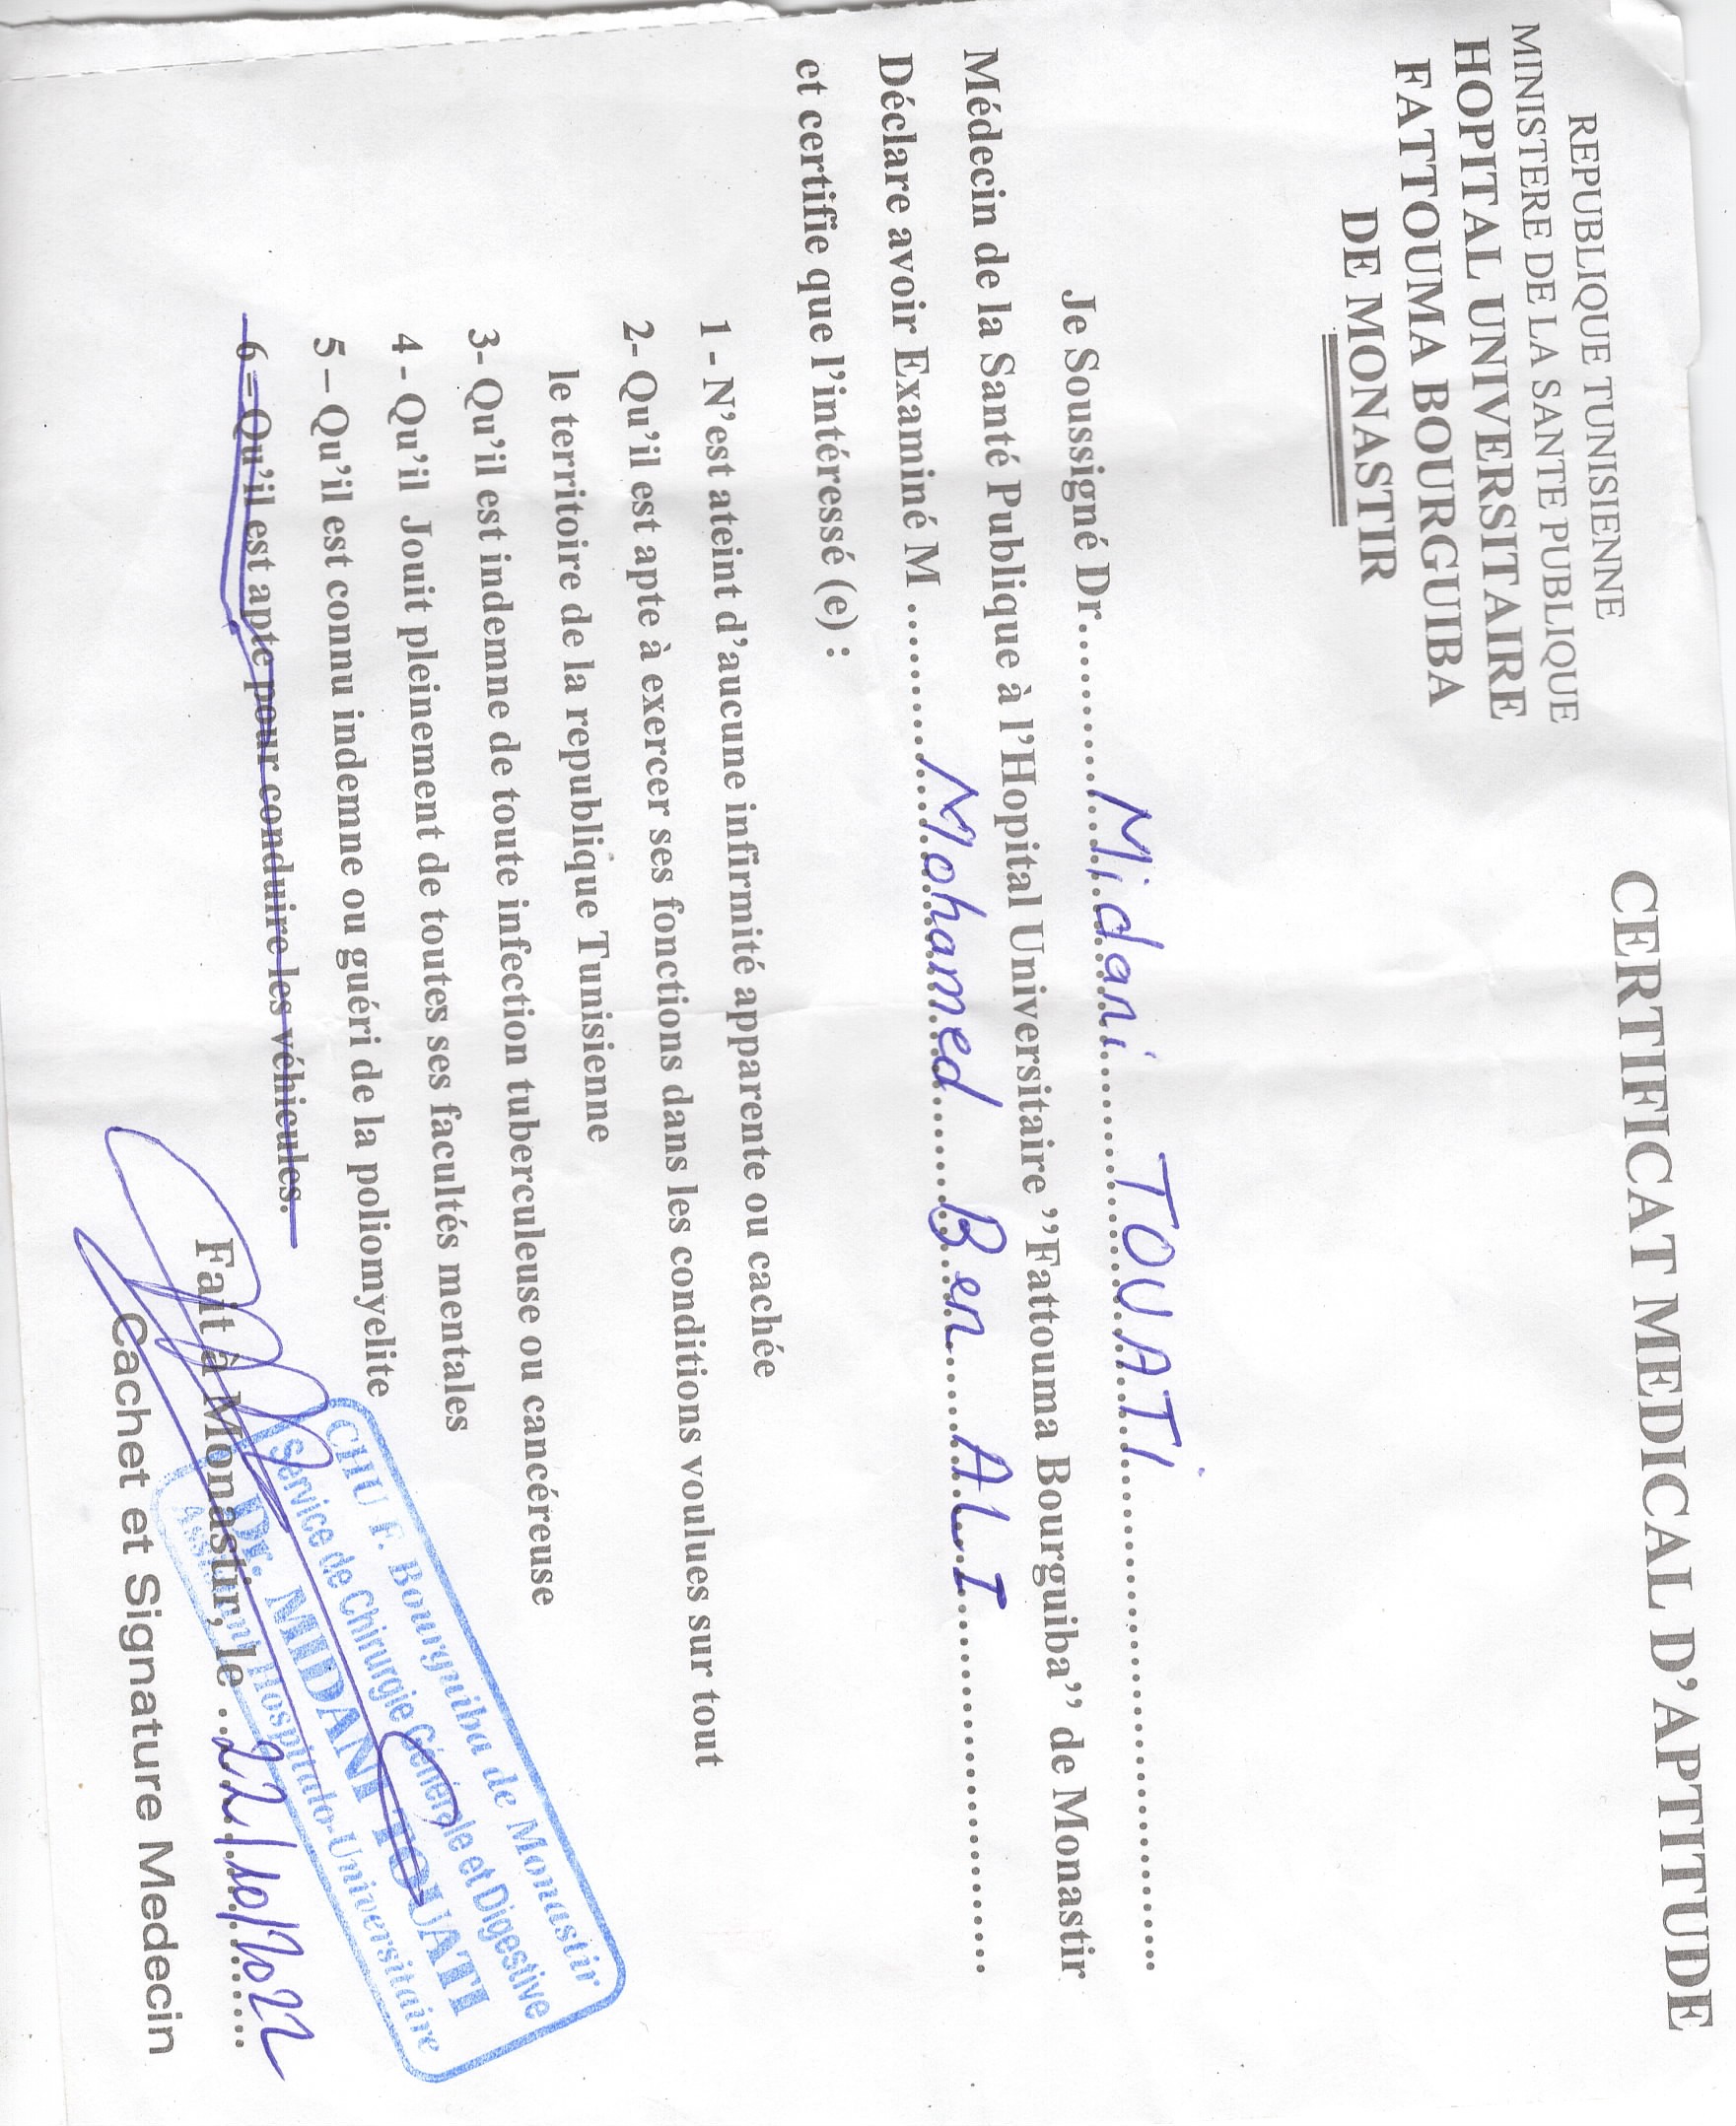 REPUBLIQUE TUNISIENNE
MINISTERE DE LA SANTE PUBLIQUE
HOPITAL UNIVERSITAIRE
FATTOUMA BOURGUIBA
DE MONASTIR
CERTIFICAT MEDICAL D'APTITUDE
Je Soussigné Dr. Midani TOUATI
Médecin de la Santé Publique à l'Hopital Universitaire ''Fattouma Bourguiba'' de Monastir
Déclare avoir Examiné M Mohamed Ben ALI
et certifie que l'intéressé (e) :
1 - N'est ateint d'aucune infirmité apparente ou cachée
2- Qu'il est apte à exercer ses fonctions dans les conditions voulues sur tout
le territoire de la republique Tunisienne
3- Qu'il est indemne de toute infection tuberculeuse ou cancéreuse
4 - Qu'il Jouit pleinement de toutes ses facultés mentales
5 – Qu'il est connu indemne ou guéri de la poliomyelite
6 – Qu'il est apte pour conduire les véhicules.
Fait à Monastir, le 22/10/2022
Cachet et Signature Medecin
CHU F. Bourguiba de Monastir
Service de Chirurgie Générale et Digestive
Dr. MIDANI TOUATI
Assistant Hospitalo-Universitaire